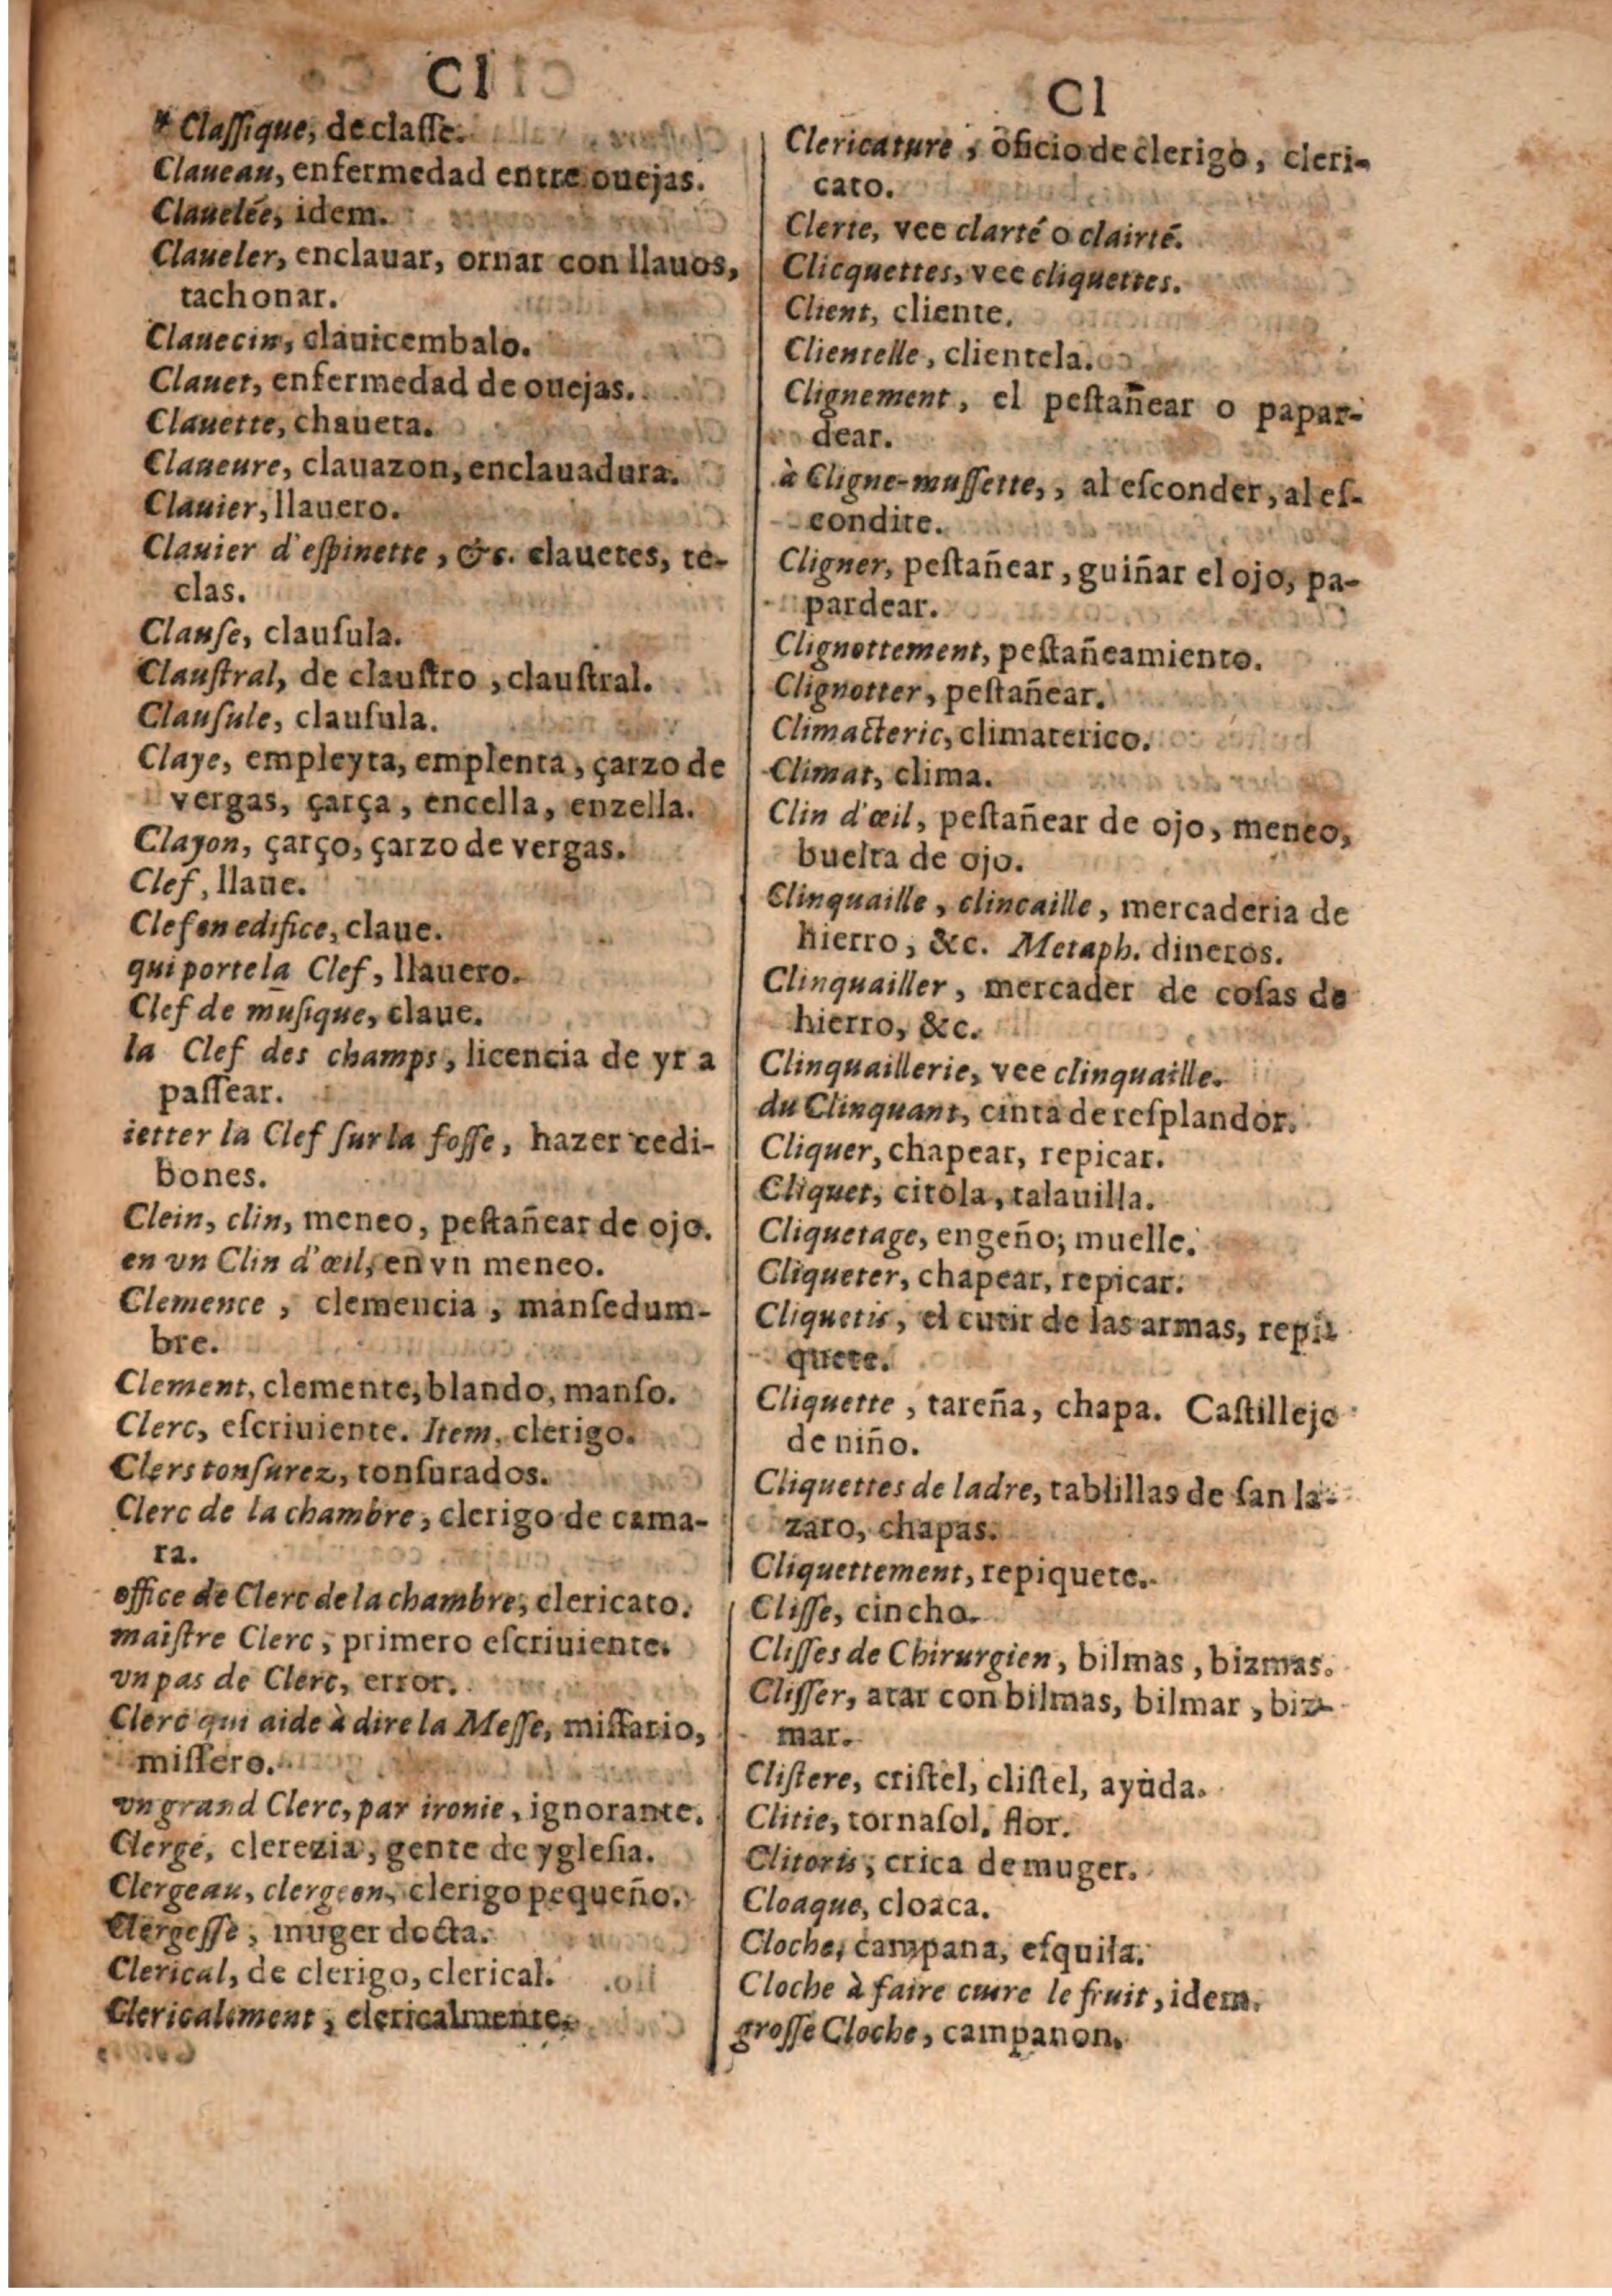 Cl
* Claſſique, de claſſe.
Claueau, enfermedad entre ouejas.
Clauelée, idem.
Claueler, enclauar, ornar con llauos,
tachonar.
Clauecin, clauicembalo.
Clauet, enfermedad de ouejas.
Clauette, chaueta.
Claueure, clauazon, enclauadura.
Clauier, llauero.
Clauier d'eſpinette, &c. clauetes, te-
clas.
Clauſe, clauſula.
Clauſtral, de clauſtro, clauſtral.
Clauſule, clauſula.
Claye, empleyta, emplenta, çarzo de
vergas, çarça, encella, enzella.
Clayon, çarço, çarzo de vergas.
Clef, llaue.
Clef en edifice, claue.
qui porte la Clef, llauero.
Clef de muſique, claue.
la Clef des champs, licencia de yr a
paſſear.
ietter la Clef ſur la foſſe, hazer cedi-
bones.
Clein, clin, meneo, peſtañear de ojo.
en vn Clin d'œil, en vn meneo.
Clemence, clemencia, manſedum-
bre.
Clement, clemente, blando, manſo.
Clerc, eſcriuiente. Item, clerigo.
Clers tonſurez, tonſurados.
Clerc de la chambre, clerigo de cama-
ra.
office de Clerc de la chambre, clericato.
maiſtre Clerc, primero eſcriuiente.
vn pas de Clerc, error.
Clerc qui aide à dire la Meſſe, miſſario,
miſſero.
vn grand Clerc, par ironie, ignorante.
Clergé, clerezia, gente de ygleſia.
Clergeau, clergeon, clerigo pequeño.
Clergeſſe, muger docta.
Clerical, de clerigo, clerical.
Clericalement, clericalmente.
Cl
Clericature, oficio de clerigo, cleri-
cato.
Clerte, vee clarté o clairté.
Clicquettes, vee cliquettes.
Client, cliente.
Clientelle, clientela.
Clignement, el peſtañear o papar-
dear.
à Cligne-muſſette,, al eſconder, al eſ-
condite.
Cligner, peſtañear, guiñar el ojo, pa-
pardear.
Clignottement, peſtañeamiento.
Clignotter, peſtañear.
Climacteric, climaterico.
Climat, clima.
Clin d'œil, peſtañear de ojo, meneo,
buelta de ojo.
Clinquaille, clincaille, mercaderia de
hierro, &c. Metaph. dineros.
Clinquailler, mercader de coſas de
hierro, &c.
Clinquaillerie, vee clinquaille.
du Clinquant, cinta de reſplandor.
Cliquer, chapear, repicar.
Cliquet, citola, talauilla.
Cliquetage, engeño, muelle.
Cliqueter, chapear, repicar.
Cliquetis, el cutir de las armas, repi-
quete.
Cliquette, tareña, chapa. Caſtillejo
de niño.
Cliquettes de ladre, tablillas de ſan la-
zaro, chapas.
Cliquettement, repiquete.
Cliſſe, cincho.
Cliſſes de Chirurgien, bilmas, bizmas.
Cliſſer, atar con bilmas, bilmar, biz-
mar.
Cliſtere, criſtel, cliſtel, ayuda.
Clitie, tornaſol, flor.
Clitoris, crica de muger.
Cloaque, cloaca.
Cloche, campana, eſquila.
Cloche à faire cuire le fruit, idem.
groſſe Cloche, campanon.